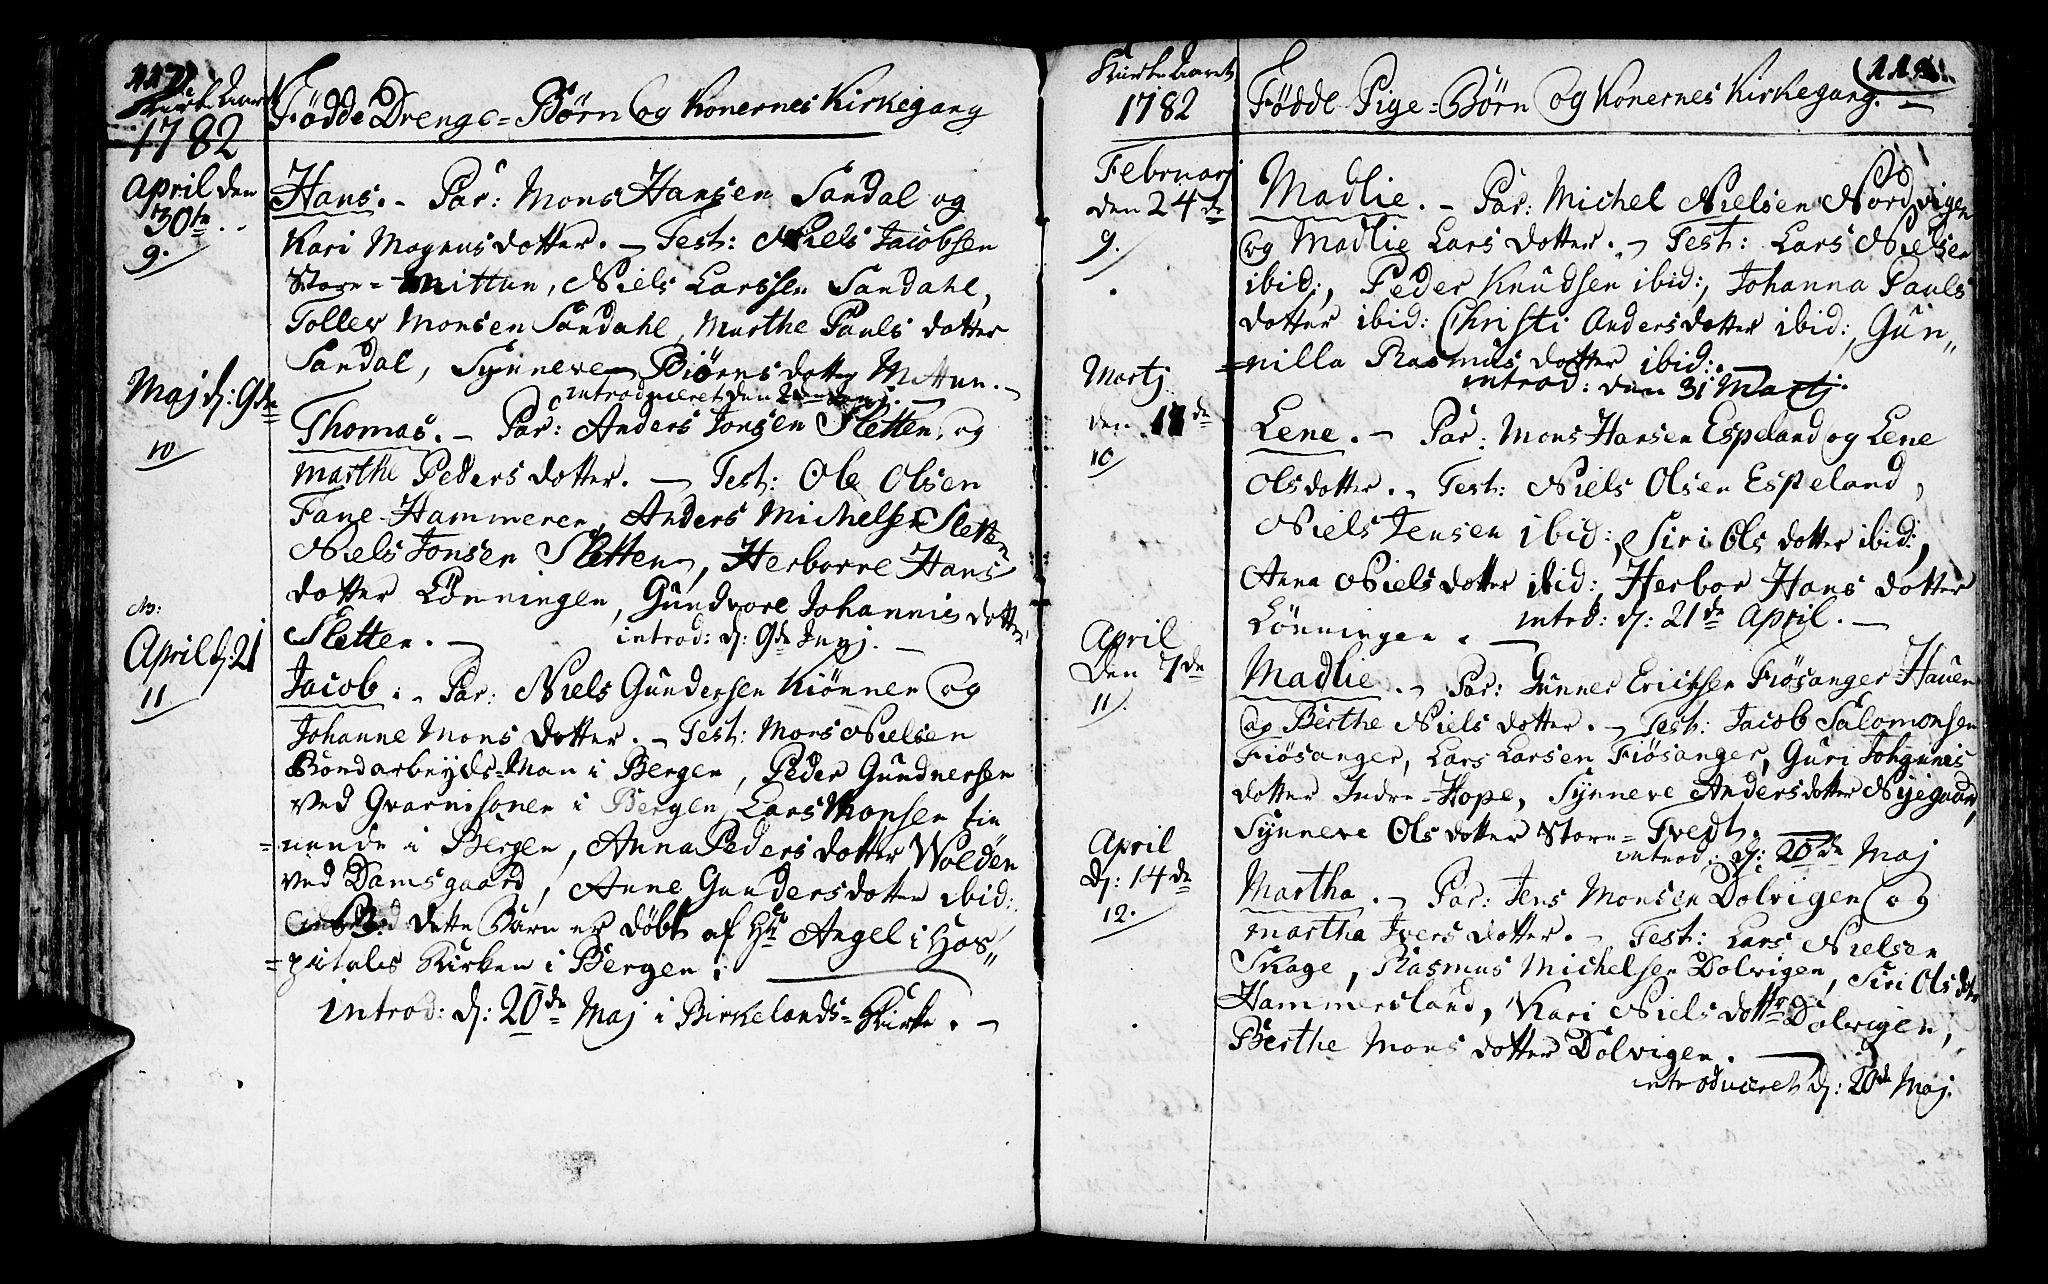 117.
Kirke Aaret
1782
Fødde Drenge=Børn og Konernes Kirkegang
April den
30te
9.
Hans. - Par: Mons Hansen Sandal og
Kari Magnus dotter. - Test: Niels Jacobsen
Store=Mittun, Niels Larssen Sandahl,
Toller Monsen Sandahl, Marthe Pauls dotter
Sandal, Synneve Biørns dotter Mittun. -
introduceret den
Maj d: 9de
10
Thomas. - Par: Anders Jonsen Sletten, og
Marthe Peders dotter. - Test: Ole Olsen
Fane-Hammeren, Anders Michelsen Sletten
Niels Jonsen Sletten, Herborre Hans
dotter Lønningen, Gundvore Johannis dotter
Sletten. -
introd: d: 9de Junj. -
NB:
April d: 21
11
Jacob. - Par: Niels Gundersen Kiønnen og
Johanne Mons dotter. - Test: Mons Nielsen
Bondarbeyds=Man i Bergen, Peder Gundersen
ved Gvarnisonen i Bergen, Lars Monsen tie
=nende i Bergen, Anna Peders dotter Wolden
ved Damsgaard, Anne Gunders dotter ibid:
NB: dette Barn er døbt af Hr Angel i Hos"
=pitals Kirken i Bergen.
introd: d: 20de Maj i Birkelands=Kirke. -
Kirke Aaret
1782
Fødde Pige=Børn og Konernes Kirkegang. -
118.
Februarj
den 24de
9.
Madlie. - Par: Michel Nielsen Nordvigen
og Madlie Lars dotter. - Test: Lars Nielsen
ibid:, Peder Knudsen ibid:, Johanna Pauls
dotter ibid: Christi Anders dotter ibid:, Gun"
=nilla Rasmus dotter ibid:. -
introd: den 31 Martj.
Martj
den 18de
10
Lene. - Par: Mons Hansen Espeland og Lene
Ols dotter. - Test: Niels Olsen Espeland,
Niels Jensen ibid:, Siri Ols dotter ibid:,
Anna Niels dotter ibid:, Herbor Hans dotter
Lønningen. -
introd: d: 21de April. -
April
Den 7de
11.
Madlie. - Par: Gunner Erichsen Fiøsanger Hauen
og Berthe Niels dotter. - Test: Jacob Salomonsen
Fiøsanger, Lars Larsen Fiøsanger, Guri Johannis
dotter Indre-Hope, Synneve Anders dotter Nyegaard,
Synneve Ols dotter Store=Tvedt. -
introd: d: 20de Maj
April
d: 14de
12.
Martha. - Par: Jens Monsen Dolvigen og
Martha Ivers dotter. - Test: Lars Nielsen
Skage, Rasmus Michelsen Dolvigen, Siri Ols dotr
Hammersland, Kari Niels dotter Dolvigen,
Berthe Mons dotter Dolvigen. -
introduceret d: 20de Maj.